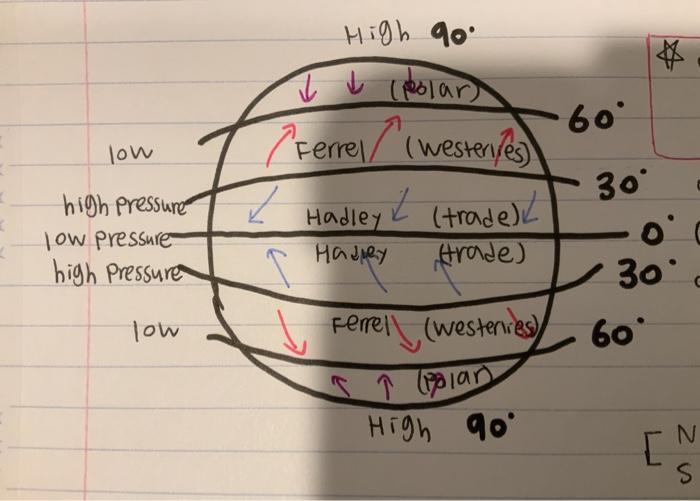 High 90°
(polar)
60°
low
Ferrel (westerlies)
30°
high pressure
Hadley (trade)
low pressure
0°
Hadley (trade)
high Pressure
30°
Ferrel (westerlies)
low
60°
(polar)
High 90°
[ N
S